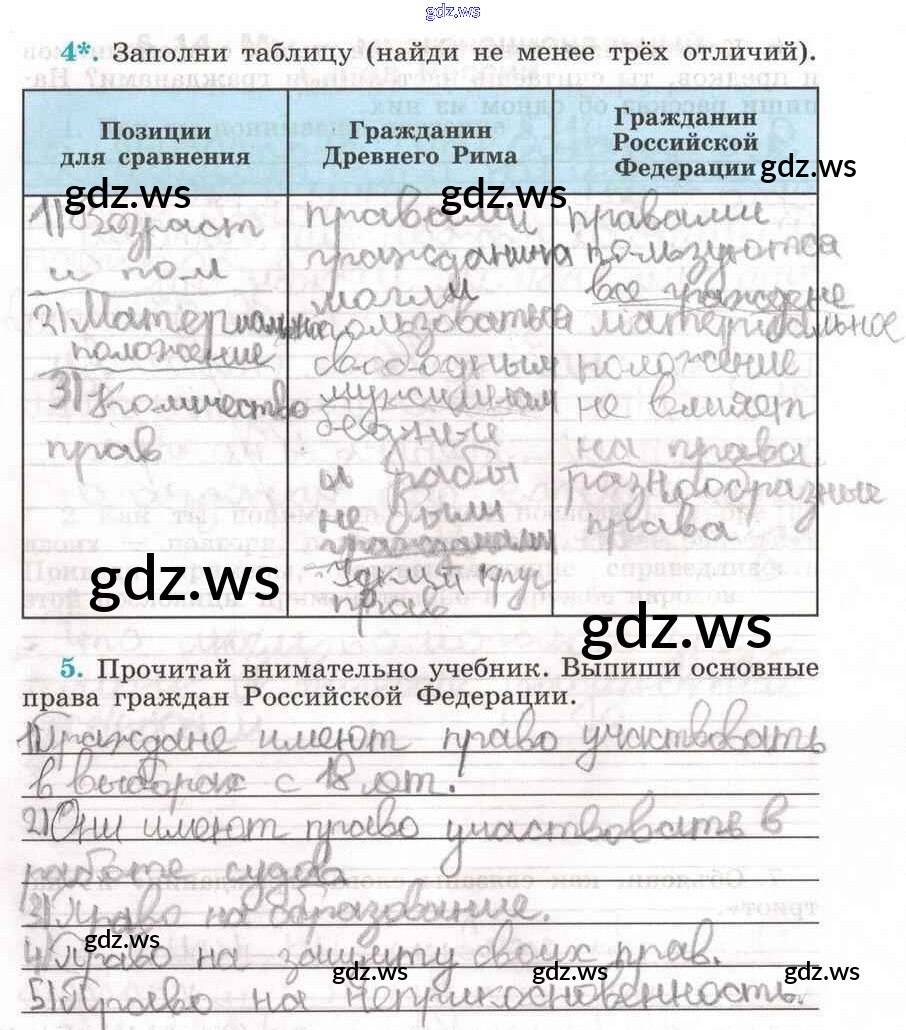 gdz.ws
4*. Заполни таблицу (найди не менее трёх отличий).
Позиции
для сравнения
Гражданин
Древнего Рима
Гражданин
Российской
Федерации
gdz.ws
gdz.ws
gdz.ws
1) Возраст
и пол
2) Материальное
положение
3) Количество
прав
правами
гражданина
могли
пользоваться
свободным
мужчинам
бедные
и рабы
не были
гражданами
прав
правами
пользуются
все граждане
материальное
положение
не влияет
на права
разнообразные
права
gdz.ws
gdz.ws
5. Прочитай внимательно учебник. Выпиши основные
права граждан Российской Федерации.
1) Граждане имеют право участвовать
в выборах с 18 лет.
2) Они имеют право участвовать в
работе суда
3) Право на образование.
4) Право на защиту своих прав.
5) Право на неприкосновенность.
gdz.ws
gdz.ws
gdz.ws
gdz.ws